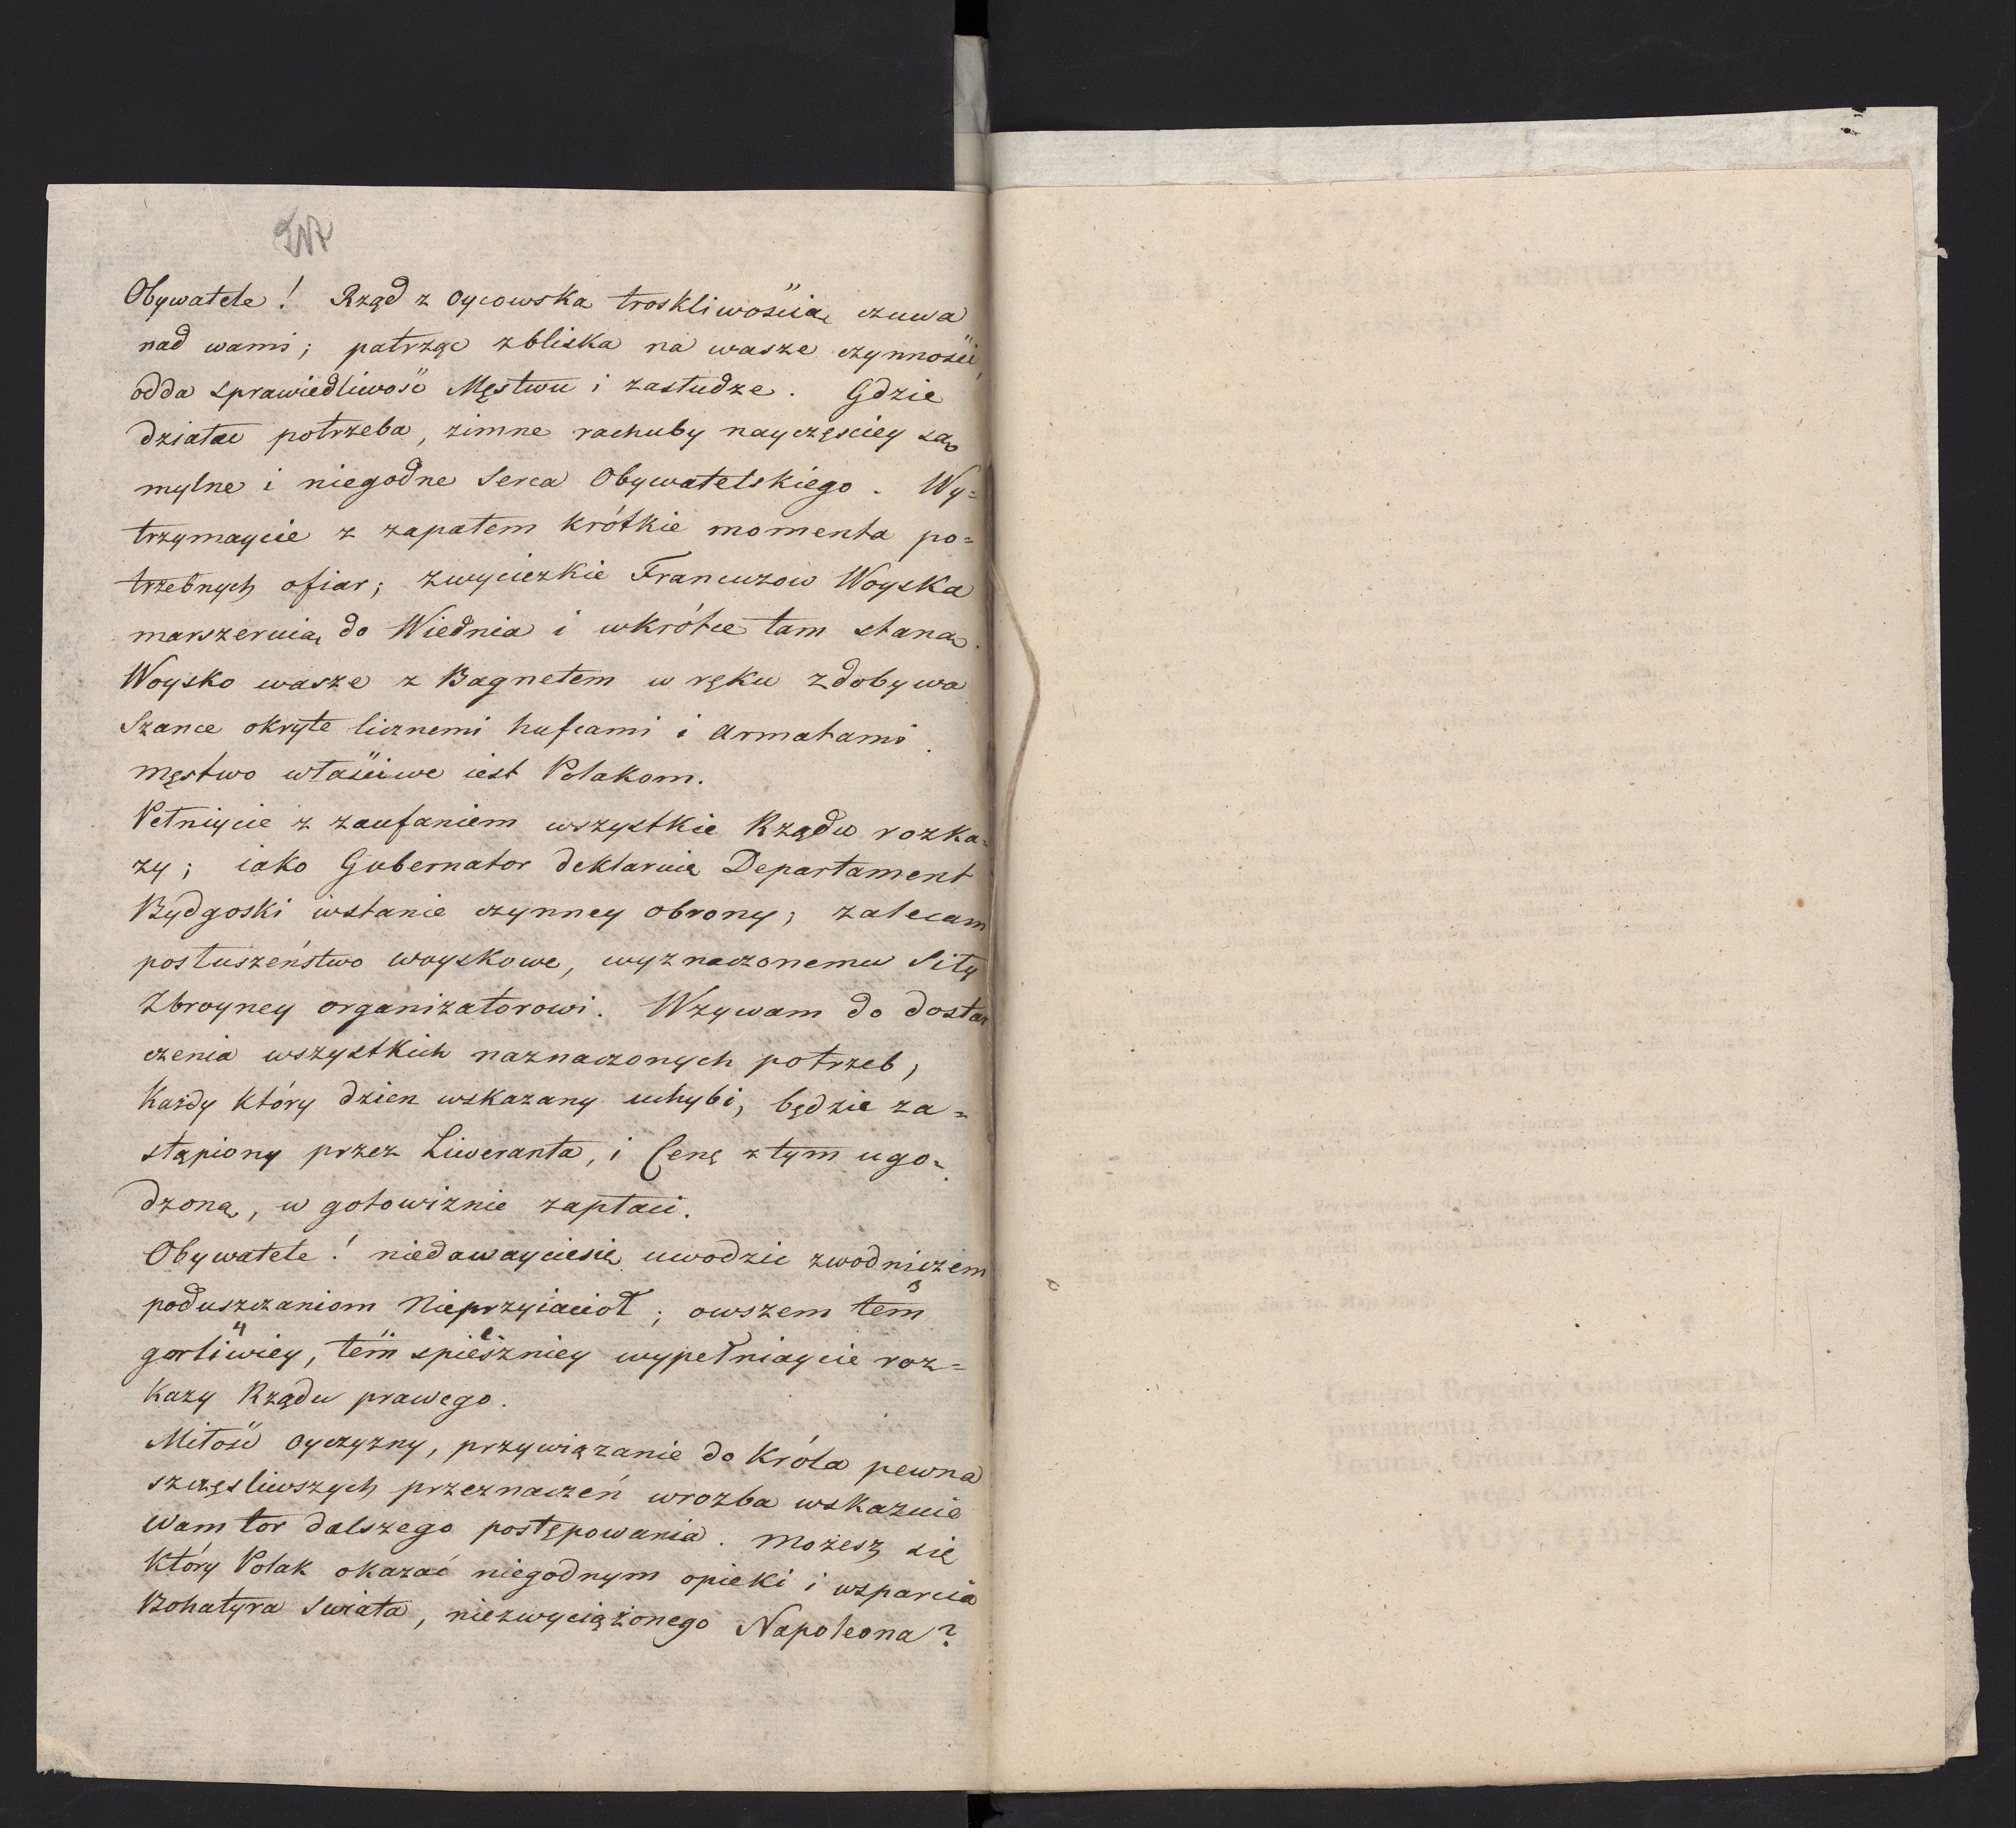 Obywatele! Rząd z oycowska troskliwością czuwa
nad wami; patrząc zbliska na wasze czynności,
odda sprawiedliwość Męstwu i zasłudze. Gdzie
działać potrzeba, zimne rachuby nayczęściey są
mylne i niegodne Serca Obywatelskiego. Wy=
trzymaycie z zapałem krótkie momenta po=
trzebnych ofiar; zwyciezkie Francuzow Woyska
marszeruią do Wiednia i wkrótce tam staną.
Woysko wasze z Bagnetem w ręku zdobywa
Szance okryte licznemi hufcami i armatami.
męstwo właściwe iest Polakom.
Pełniycie z zaufaniem wszystkie Rządu rozka=
zy; iako Gubernator deklaruię Departament
Bydgoski wstanie czynney obrony; zalecam
posłuszeństwo woyskowe, wyznaczonemu Siły
Zbroyney organizatorowi. Wzywam do dostar
czenia wszystkich naznaczonych potrzeb,
Każdy który dzien wskazany uchybi, będzie za=
stąpiony przez Liweranta, i Cenę z tym ugo=
dzoną, w gotowiznie zapłaci.
Obywatele! niedawayciesię uwodzic zwodniczem
poduszczaniom Nieprzyiacioł; owszem tem
gorliwiey, tem spieszniey wypełniaycie roz=
kazy Rządu prawego.
Miłość oyczyzny, przywiązanie do Króla pewna
szczęsliwszych przeznaczeń wrozba wskazuie
Wam tor dalszego postępowania. Możesz się
który Polak okazać niegodnym opieki i wsparcia
Bohatyra Swiata, niezwyciążonego Napoleona?